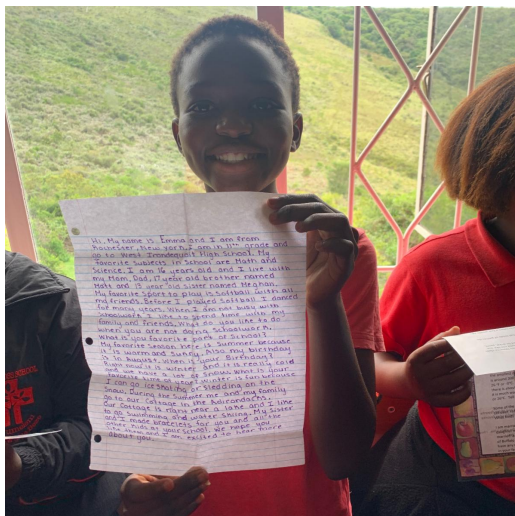 Hi, My name is Emma and I am from
Rochester, New York. I am in 11th grade and
go to West Irondequoit High School. My
favorite subjects in School are Math and
Science. I am 16 years old and I live with
my Mom, Dad, 17 year old brother named
Matt and 13 year old sister named Meghan.
My favorite Sport to play is Softball with all
my friends. Before I played Softball, I danced
for many years. When I am not busy with
Schoolwork I like to spend time with my
family and friends. What do you like to do
when you are not doing Schoolwork.
What is you favorite part of School?
My favorite season here is Summer because
it is warm and Sunny. Also my birthday
is In August. When is your Birthday?
Right now it is winter and it is really cold
and we have a lot of Snow. What is your
favorite time of year? Winter is fun because
I can go ice skating or sledding on the
Snow. During the Summer me and my family
go to our Cottage in the Adirondacks.
Our Cottage is right near a lake and I like
to go Swimming and water skiing. My Sister
and I made bracelets for you and all the
other kids at your School. We hope you
like them and I am excited to hear more
about you.